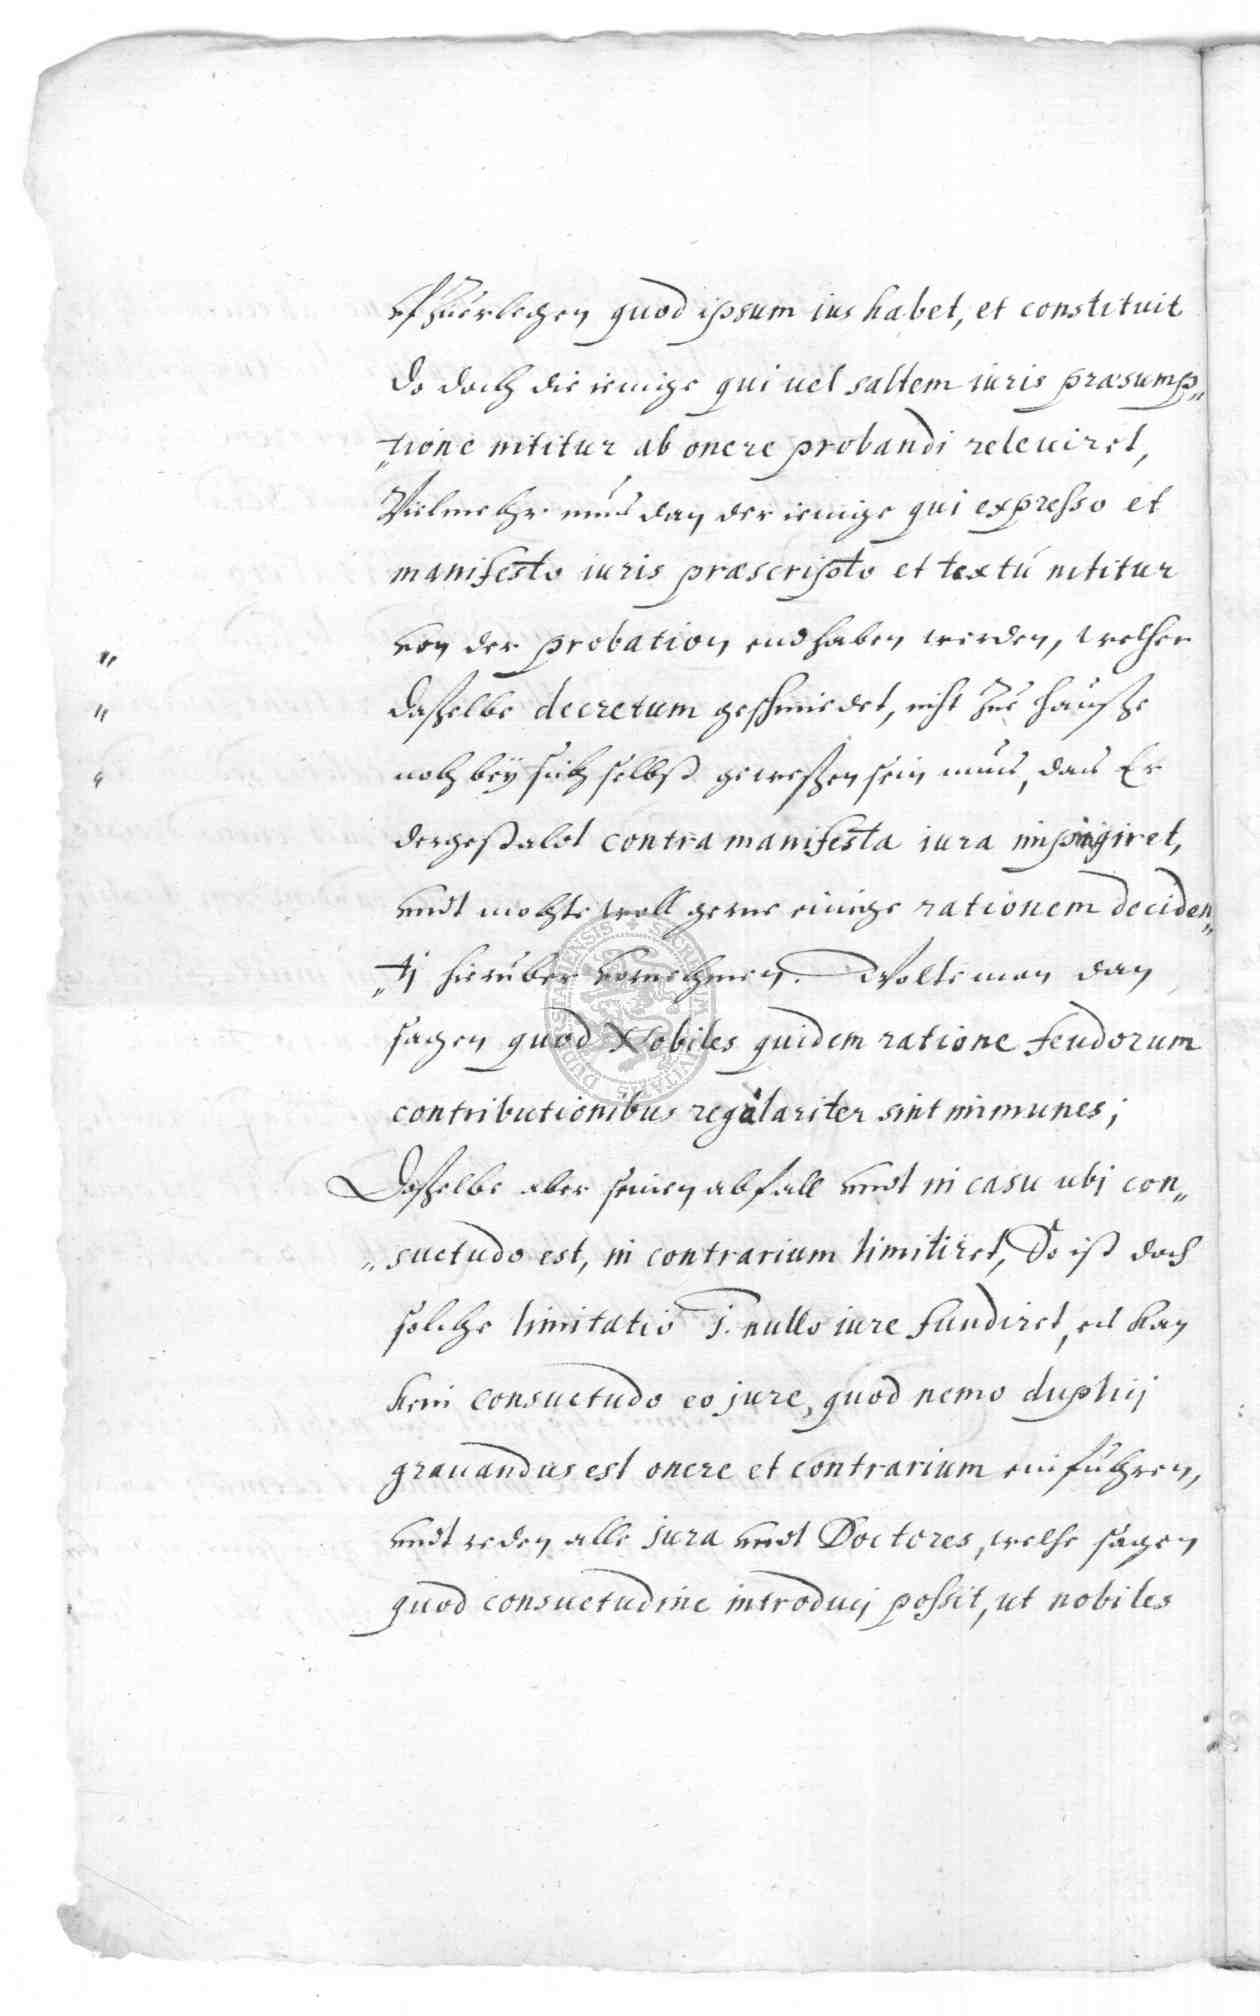 ufzuerlegen quod ipsum ius habet, et constituit
do doch die ienige qui uel saltem iuris præsump„
„tione nititur ab onere probandi releuiret,
Vielmehr mus dan der ienige qui expresso et
manifesto iuris præscripto et textu nititur
von der probation endhaben werden, welcher
dasselbe decretum geschmiedet, nicht zue hausse
noch bey sich selbst gewessen sein mus, das Er
dergestaldt contra manifesta iura impingiret,
undt mochte woll gerne einige rationem deciden„
„dj hieruber vernehmen. Wolte man dan
sagen quod Nobiles quidem ratione feudorum
contributionibus regulariter sint immunes;
Dasselbe aber seinen abfall undt in casu ubj con„
„suetudo est, in contrarium limitiret, So ist doch
solche limitatio j. nullo iure fundiret, es kan
kein consuetudo eo jure, quod nemo duplicj
grauandus est onere et contrarium einführen,
undt reden alle jura undt Doctores, welche sagen
quod consuetudine introducj possit, ut nobiles